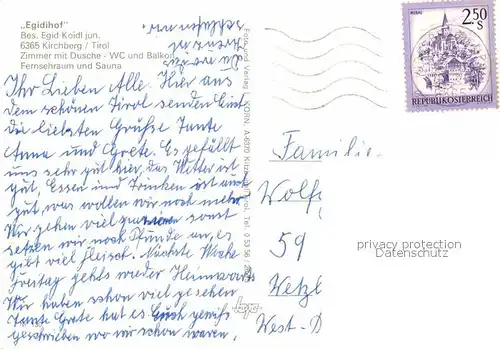 „Egidihof"
Bes. Egid Koidl jun.
6365 Kirchberg / Tirol
Zimmer mit Dusche - WC und Balkon
Fernsehraum und Sauna
Ihr Lieben Alle. Hier aus
dem schönen Tirol senden Euch
die liebsten Grüße Tante
Anna und Grete. Es gefällt
uns sehr gut hier, das Wetter ist
gut, Essen und Trinken ist auch
gut, was wollen wir noch mehr
Wir gehen viel spazieren sonst
setzen wir noch Stunde an, es
gibt viel Fleisch. Nächste Woche
Freitag gehts wieder Heimwärts
Wir haben schon viel gesehen
Tante Grete hat es Euch gewiß
geschrieben wo wir schon waren,
Foto und Verlag KORN, A-6370
2.50
S
MURAU
REPUBLIK ÖSTERREICH
Familie
Wolf
59
Wetzl
West-D
privacy protection
Datenschutz